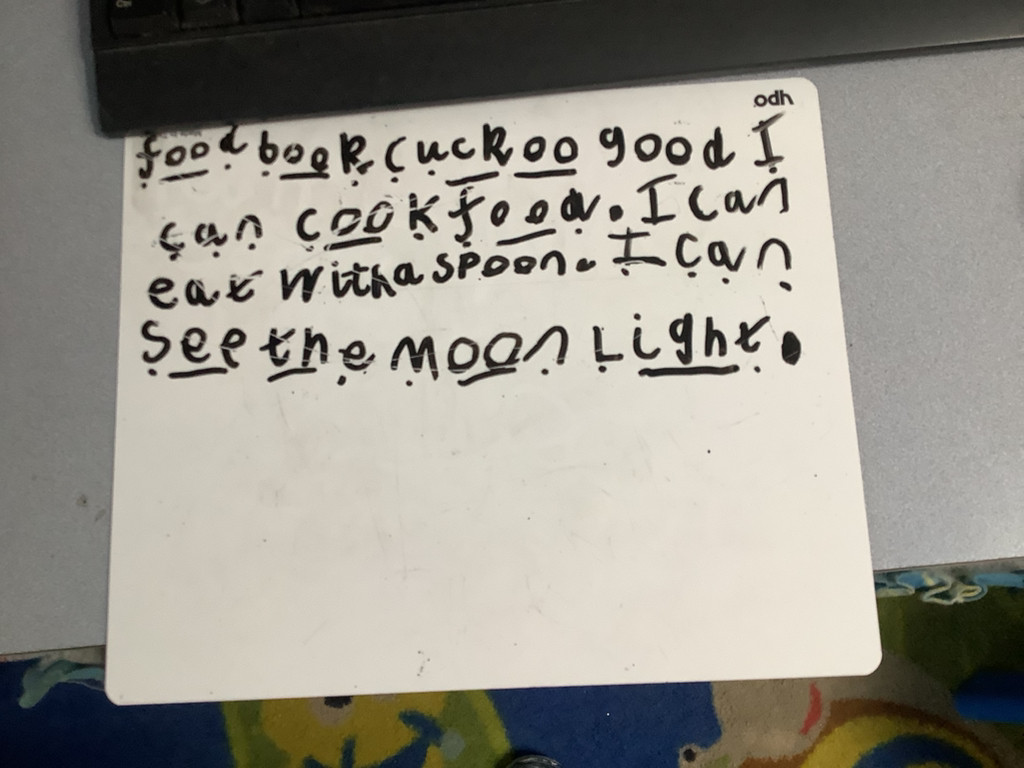 odh
food book cuckoo good I
can cook food. I can
eat with a spoon. I can
see the moon Light.